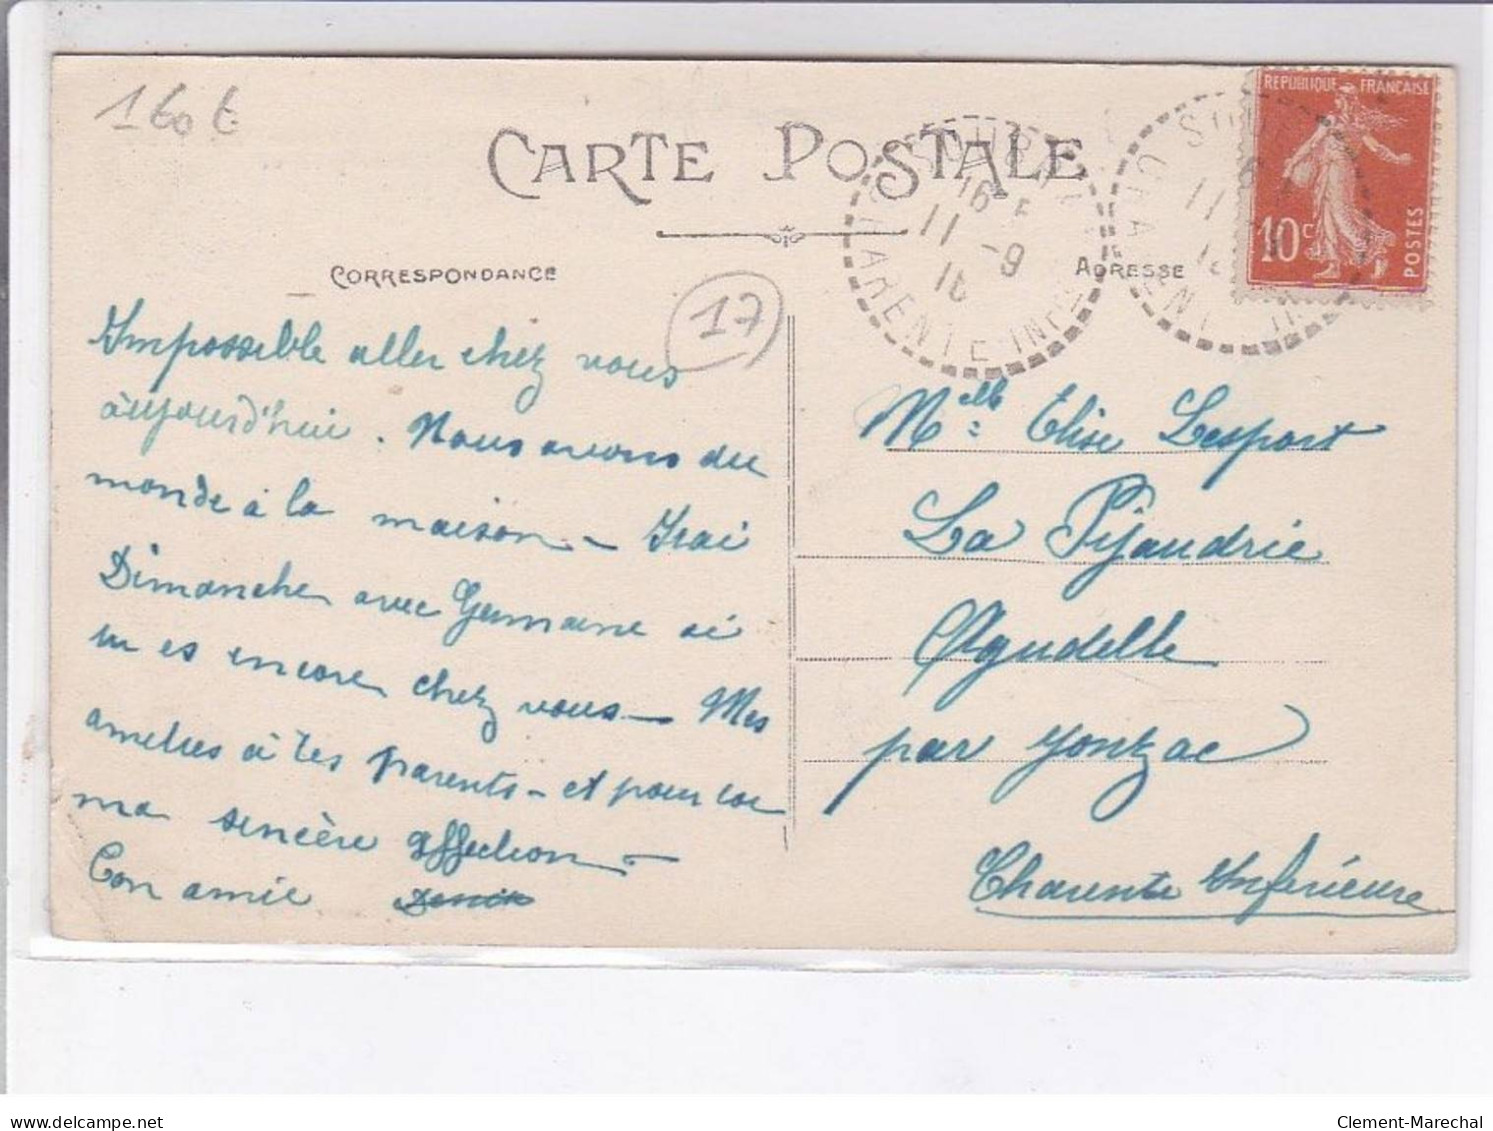 160 €
CARTE POSTALE
RÉPUBLIQUE FRANÇAISE
10c
POSTES
16
11 -9
16
CHARENTE INF
CORRESPONDANCE
ADRESSE
17
Impossible aller chez vous
aujourd'hui. Nous avons du
monde à la maison - Irai
Dimanche avec Germaine si
tu es encore chez vous - Mes
amitiés à tes parents - et pour toi
ma sincère affection -
Ton amie Denise
Melle Elise Lesport
La Pijaudrie
Agudelle
par Jonzac
Charente Inférieure
Clement-Marechal
delcampe.net